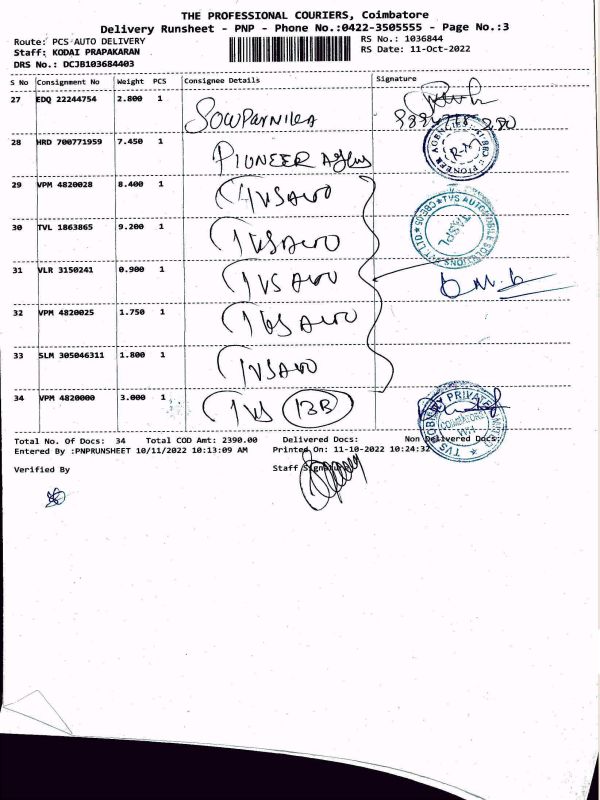 THE PROFESSIONAL COURIERS, Coimbatore
Delivery Runsheet - PNP - Phone No.:0422-3505555 - Page No.:3
Route: PCS AUTO DELIVERY
RS No.: 1036844
Staff: KODAI PRAPAKARAN
RS Date: 11-Oct-2022
DRS No.: DCJB103684403
S No Consignment No Weight PCS Consignee Details Signature
27 EDQ 22244754 2.800 1 SOWPARNIKA
28 HRD 700771959 7.450 1 PIONEER
29 VPM 4820028 8.400 1 TVS AUTO
30 TVL 1863865 9.200 1 TVS AUTO
31 VLR 3150241 0.900 1 TVS AUTO
32 VPM 4820025 1.750 1 TVS AUTO
33 SLM 305046311 1.800 1 TVS AUTO
34 VPM 4820000 3.000 1 TVS
Total No. Of Docs: 34 Total COD Amt: 2390.00 Delivered Docs: Non Delivered Docs:
Entered By :PNPRUNSHEET 10/11/2022 10:13:09 AM Printed On: 11-10-2022 10:24:32
Verified By Staff Signature